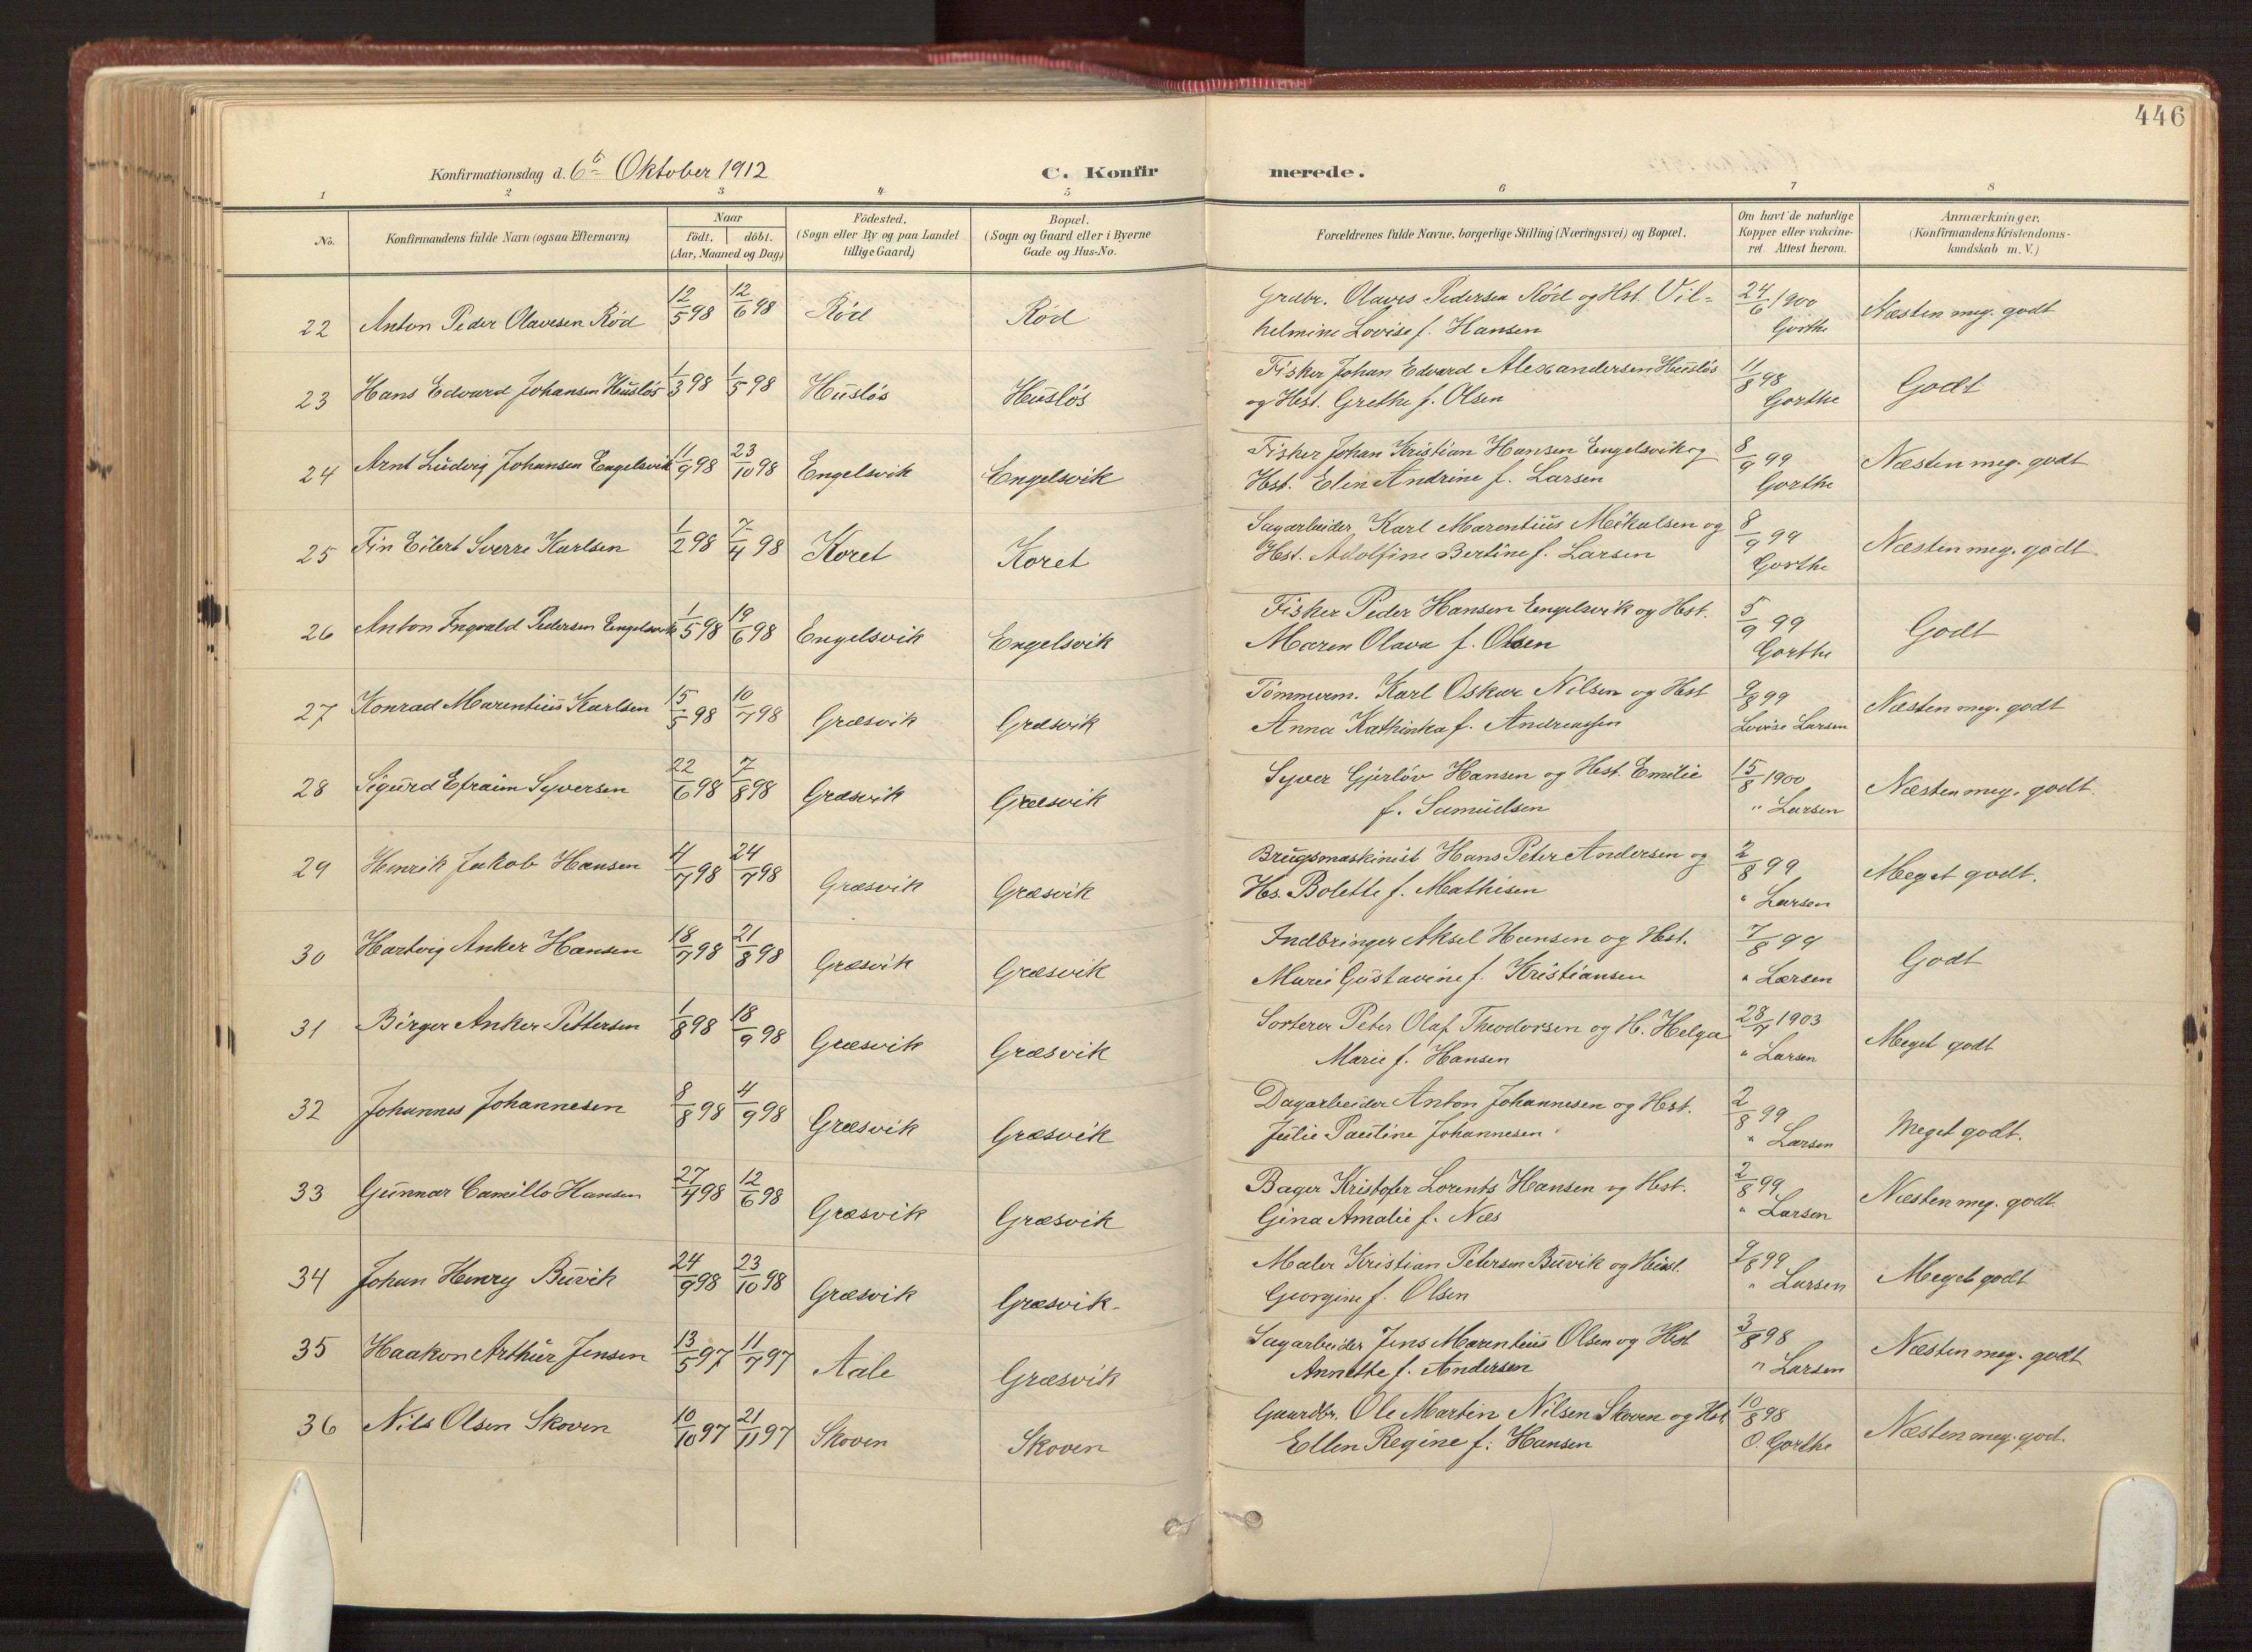 446
Konfirmationsdag d. 6te Oktober 1912
C. Konfirmerede.
1 2 3 4 5 6 7 8
No.
Konfirmandens fulde Navn (ogsaa Efternavn)
Naar
født. døbt.
(Aar, Maaned og Dag)
Födested.
(Sogn eller By og paa Landet
tillige Gaard)
Bopæl.
(Sogn og Gaard eller i Byerne
Gade og Hus-No.
Forældrenes fulde Navne, borgerlige Stilling (Næringsvei) og Bopæl.
Om havt de naturlige
Kopper eller vakcine-
ret Attest herom.
Anmærkninger.
(Konfirmandens Kristendoms-
kundskab m. V.)
22 Anton Peder Olavesen Rød 12/5 98 12/6 98 Rød Rød
Grdbr. Olaves Pedersen Rød og Hst. Vil=
helmine Lovise f. Hansen
24/6 1900
Gorthe
Næsten meg. godt
23 Hans Edvard Johansen Husløs 1/3 98 1/5 98 Husløs Husløs
Fisker Johan Edvard Alexandersen Husløs
og Hst. Grethe f. Olsen
11/8 98
Gorthe
Godt
24 Arnt Ludvig Johansen Engelsvik 11/9 98 23/10 98 Engelsvik Engelsvik
Fisker Johan Kristian Hansen Engelsvik og
Hst. Elin Andrine f. Larsen
8/9 99
Gorthe
Næsten meg. godt
25 Fin Eilert Sverre Karlsen 1/2 98 7/4 98 Koret Koret
Sagarbeider Karl Marentius Mikalsen og
Hst. Adolfine Bertine f. Larsen
8/9 99
Gorthe
Næsten meg. godt.
26 Anton Ingvald Pedersen Engelsvik 1/5 98 19/6 98 Engelsvik Engelsvik
Fisker Peder Hansen Engelsvik og Hst.
Maren Olava f. Olsen
5/9 99
Gorthe
Godt
27 Konrad Marentius Karlsen 15/5 98 10/7 98 Græsvik Græsvik
Tömmerm. Karl Oskar Nilsen og Hst
Anna Kathinka f. Andreassen
9/8 99
Lovise Larsen
Næsten meg. godt
28 Sigurd Efraim Syversen 22/6 98 7/8 98 Græsvik Græsvik
Syver Gjerløv Hansen og Hst. Emilie
f. Samuelsen
15/8 1900
" Larsen
Næsten meg. godt.
29 Henrik Jakob Hansen 4/7 98 24/7 98 Græsvik Græsvik
Brugsmaskinist Hans Peter Andersen og
Hs. Bolette f. Mathisen
2/8 99
" Larsen
Meget godt.
30 Hartvig Anker Hansen 18/7 98 21/8 98 Græsvik Græsvik
Indbringer Aksel Hansen og Hst.
Marie Gustavine f. Kristiansen
7/8 99
" Larsen
Godt
31 Birger Anker Pettersen 1/8 98 18/9 98 Græsvik Græsvik
Sorterer Peter Olaf Theodorsen og H. Helga
Marie f. Hansen
28/7 1903
" Larsen
Meget godt
32 Johannes Johannesen 8/8 98 4/9 98 Græsvik Græsvik
Dagarbeider Anton Johannesen og Hst.
Julie Pauline Johannesen
2/8 99
" Larsen
Meget godt.
33 Gunnar Camillo Hansen 27/4 98 12/6 98 Græsvik Græsvik
Bager Kristofer Lorents Hansen og Hst.
Gina Amalie f. Næs
2/8 99
" Larsen
Næsten meg. godt.
34 Johan Henry Buvik 24/9 98 23/10 98 Græsvik Græsvik-
Maler Kristian Petersen Buvik og Hust.
Georgine f. Olsen
9/8 99
" Larsen
Meget godt
35 Haakon Arthur Jensen 13/5 97 11/7 97 Aale Græsvik
Sagarbeider Jens Marentius Olsen og Hst
Annette f. Andersen
3/8 98
" Larsen
Næsten meg. godt
36 Nils Olsen Skoven 10/10 97 21/11 97 Skoven Skoven
Gaardbr. Ole Martin Nilsen Skoven og Hst.
Ellen Regine f. Hansen
10/8 98
O. Gorthe
Næsten meg. god.